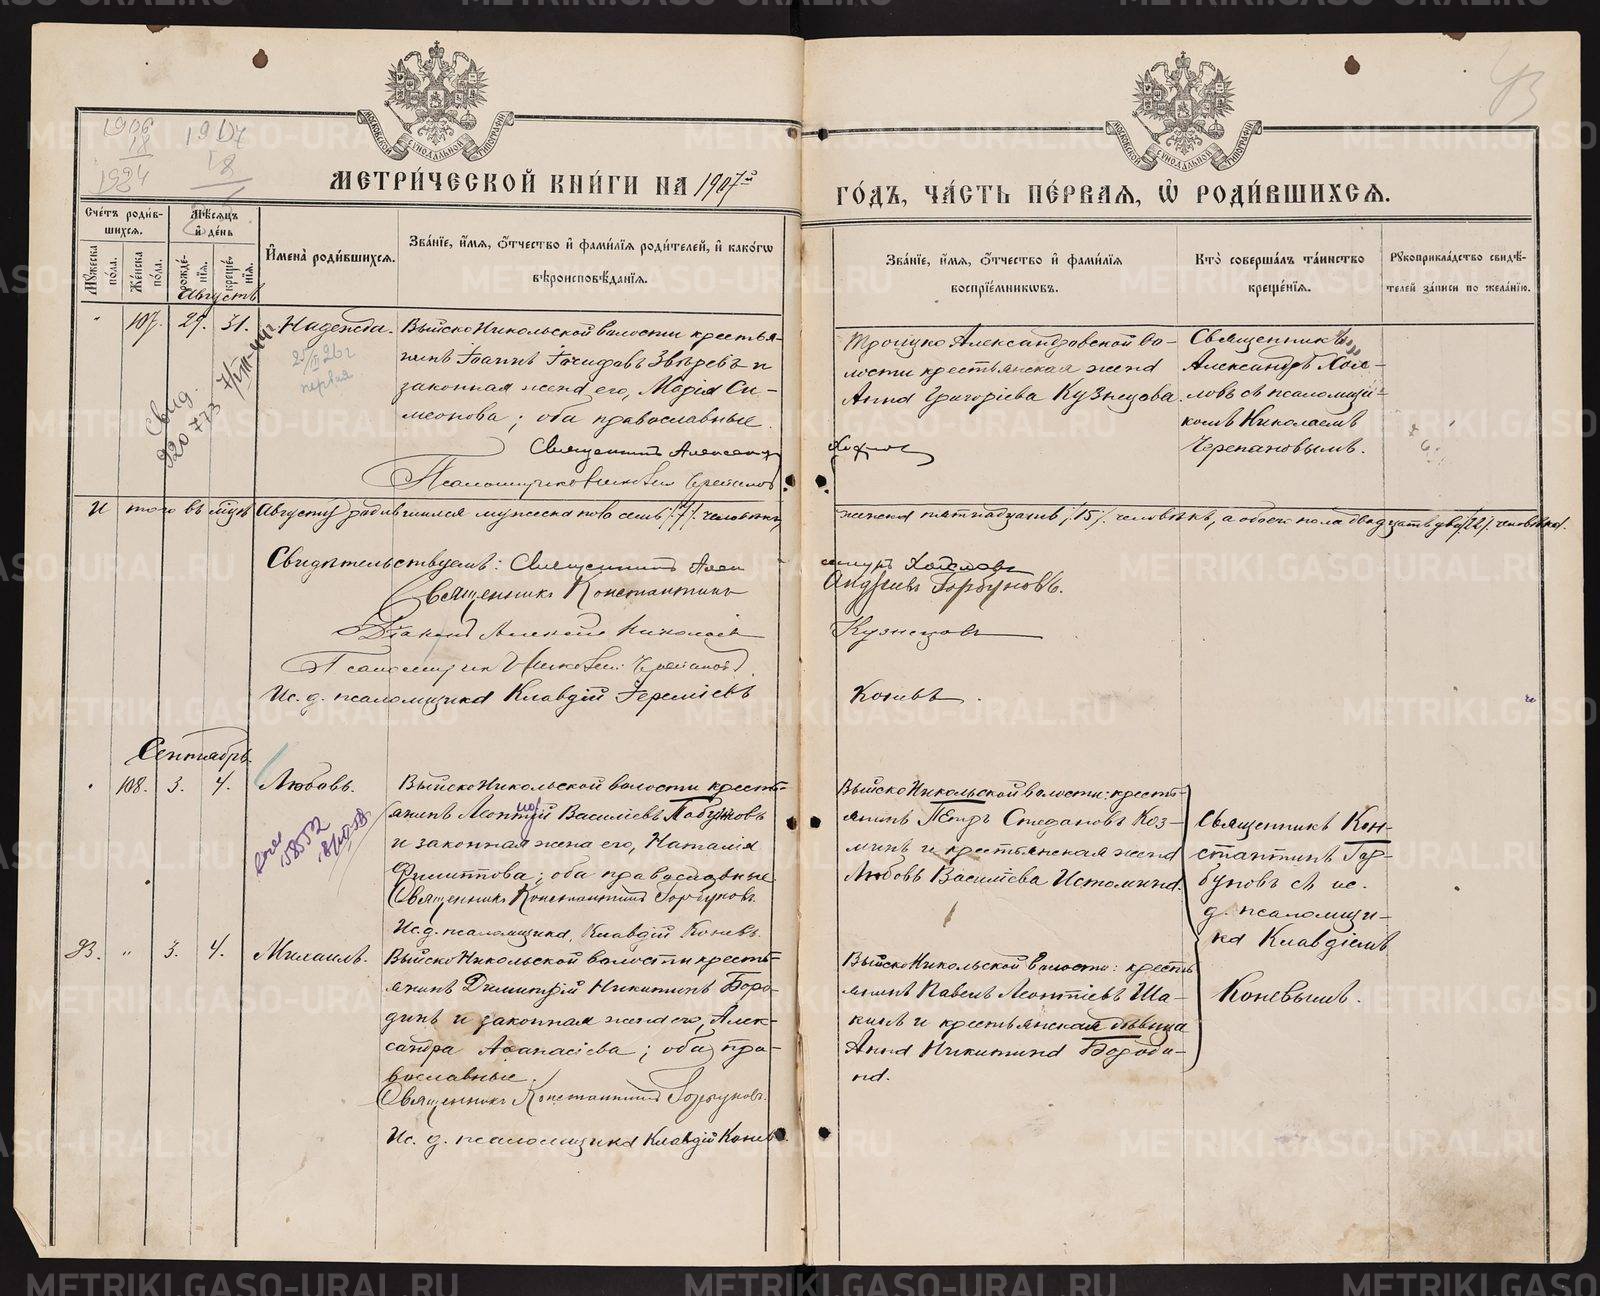 МЕТРИ́ЧЕСКОЙ КНИ́ГИ НА 1907й
ГО́ДЪ, ЧА́СТЬ ПЕ́РВАЯ, Ѡ҆ РОДИ́ВШИХСѦ.
Сче́тъ роди́в-
шихсѧ.
Мѣ́сѧцъ
и҆ де́нь
Мꙋ́жеска по́ла.
Же́нска по́ла.
рожде́-
нїѧ.
креще́-
нїѧ.
И҆мена̀ роди́вшихсѧ.
Зва́нїе, и҆́мѧ, ѻ҆́тчество и҆ фами́лїѧ роди́телей, и҆ како́гѡ
вѣроисповѣ́данїѧ.
Зва́нїе, и҆́мѧ, ѻ҆́тчество и҆ фами́лїѧ
воспрїе́мникѡвъ.
Кто̀ соверша́лъ та́инство
креще́нїѧ.
Рꙋкоприкла́дство свидѣ́-
телей за́писи по жела́нїю.
1906
18
1924
1907
18
Августъ
107. 29. 31. Надежда.
Выйско Никольской волости кресть-
янинъ Іоаннъ Іосифовъ Звѣревъ и
законная жена его, Марія Си-
меонова; оба православные.
Священникъ Александръ
Псаломщикъ Николай Черепановъ
Троицко Александровской во-
лости крестьянская жена
Анна Григоріева Кузнецова.
Холмовъ
Священникъ
Александръ Хол-
мовъ съ псаломщи-
комъ Николаемъ
Черепановымъ.
И того въ мцѣ Августѣ родившихся мужеска пола семь /7/ человѣкъ,
женска пятнадцать /15/ человѣкъ, а обоего пола двадцать два /22/ человѣка.
Свидѣтельствуемъ: Священникъ Алек
сандръ Холмовъ
Священникъ Константинъ
Андреевъ Горбуновъ.
Діаконъ Алексѣй Николаевъ
Кузнецовъ
Псаломщикъ Николай Черепановъ
Ис. д. псаломщика Клавдій Іереміевъ
Коневъ.
Сентябрь.
108. 3. 4. Любовь.
Выйско Никольской волости кресть-
янинъ Леонтій Василіевъ
и законная жена его, Наталія
Филиппова; оба православные
Священникъ Константинъ Горбуновъ
Ис. д. псаломщика, Клавдій Коневъ.
Выйско Никольской волости: кресть-
янинъ Петръ Стефановъ Коз-
минъ и крестьянская жена
Любовь Василіева Истомина.
Священникъ Кон-
стантинъ Гор-
буновъ съ ис.
д. псаломщи-
ка Клавдіемъ
Коневымъ.
93. " 3. 4. Михаилъ.
Выйско Никольской волости кресть-
янинъ Димитрій Никитинъ Боро-
динъ и законная жена его, Алек-
сандра Аѳанасіева; оба пра-
вославные.
Священникъ Константинъ Горбуновъ.
Ис. д. псаломщика Клавдій Коневъ.
Выйско Никольской волости: кресть
янинъ Павелъ Леонтіевъ Ша-
кинъ и крестьянская дѣвица
Анна Никитина Бороди-
на.
METRIKI.GASO-URAL.RU